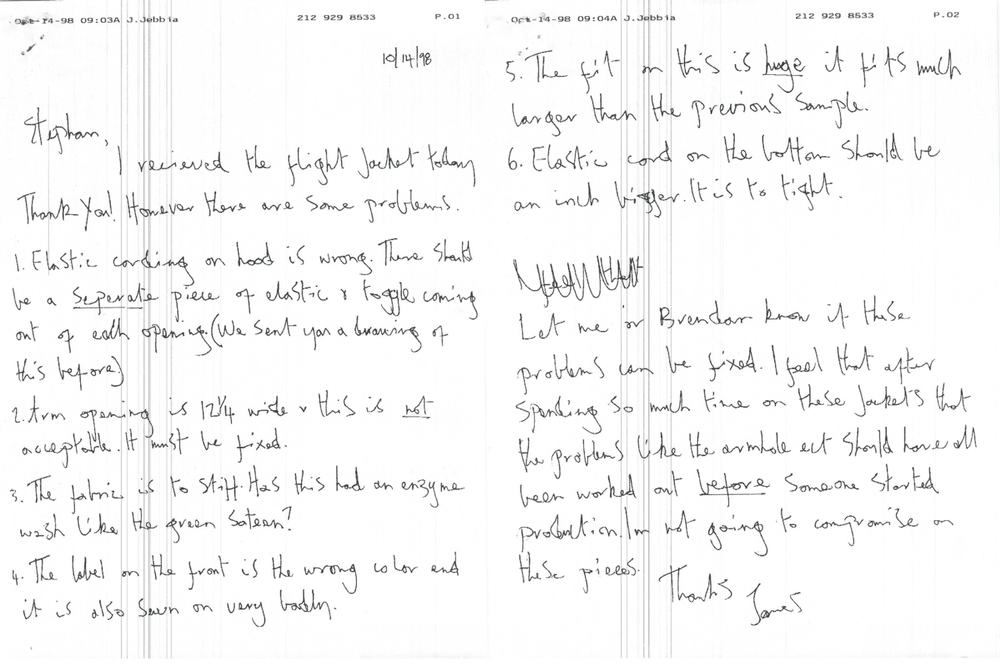 Oct-14-98 09:03A J.Jebbia 212 929 8533 P.01
10/14/98
Stephan,
I recieved the flight Jacket today
Thank You! However there are some problems.
1. Elastic cording on hood is wrong. There should
be a Seperate piece of elastic & toggle coming
out of each opening. (We sent you a drawing of
this before)
2. Arm opening is 12 1/4 wide & this is not
acceptable. It must be fixed.
3. The fabric is to stiff. Has this had an enzyme
wash like the green Sateen?
4. The label on the front is the wrong color and
it is also Sewn on very badly.
Oct-14-98 09:04A J.Jebbia 212 929 8533 P.02
5. The fit on this is huge it fits much
larger than the previous sample.
6. Elastic cord on the bottom Should be
an inch bigger. It is to tight.
Let me or Brendan know if these
problems can be fixed. I feel that after
Spending So much time on these Jackets that
the problems like the armhole ect Should have all
been worked out before Someone Started
production. Im not going to compromise on
these pieces.
Thanks
James